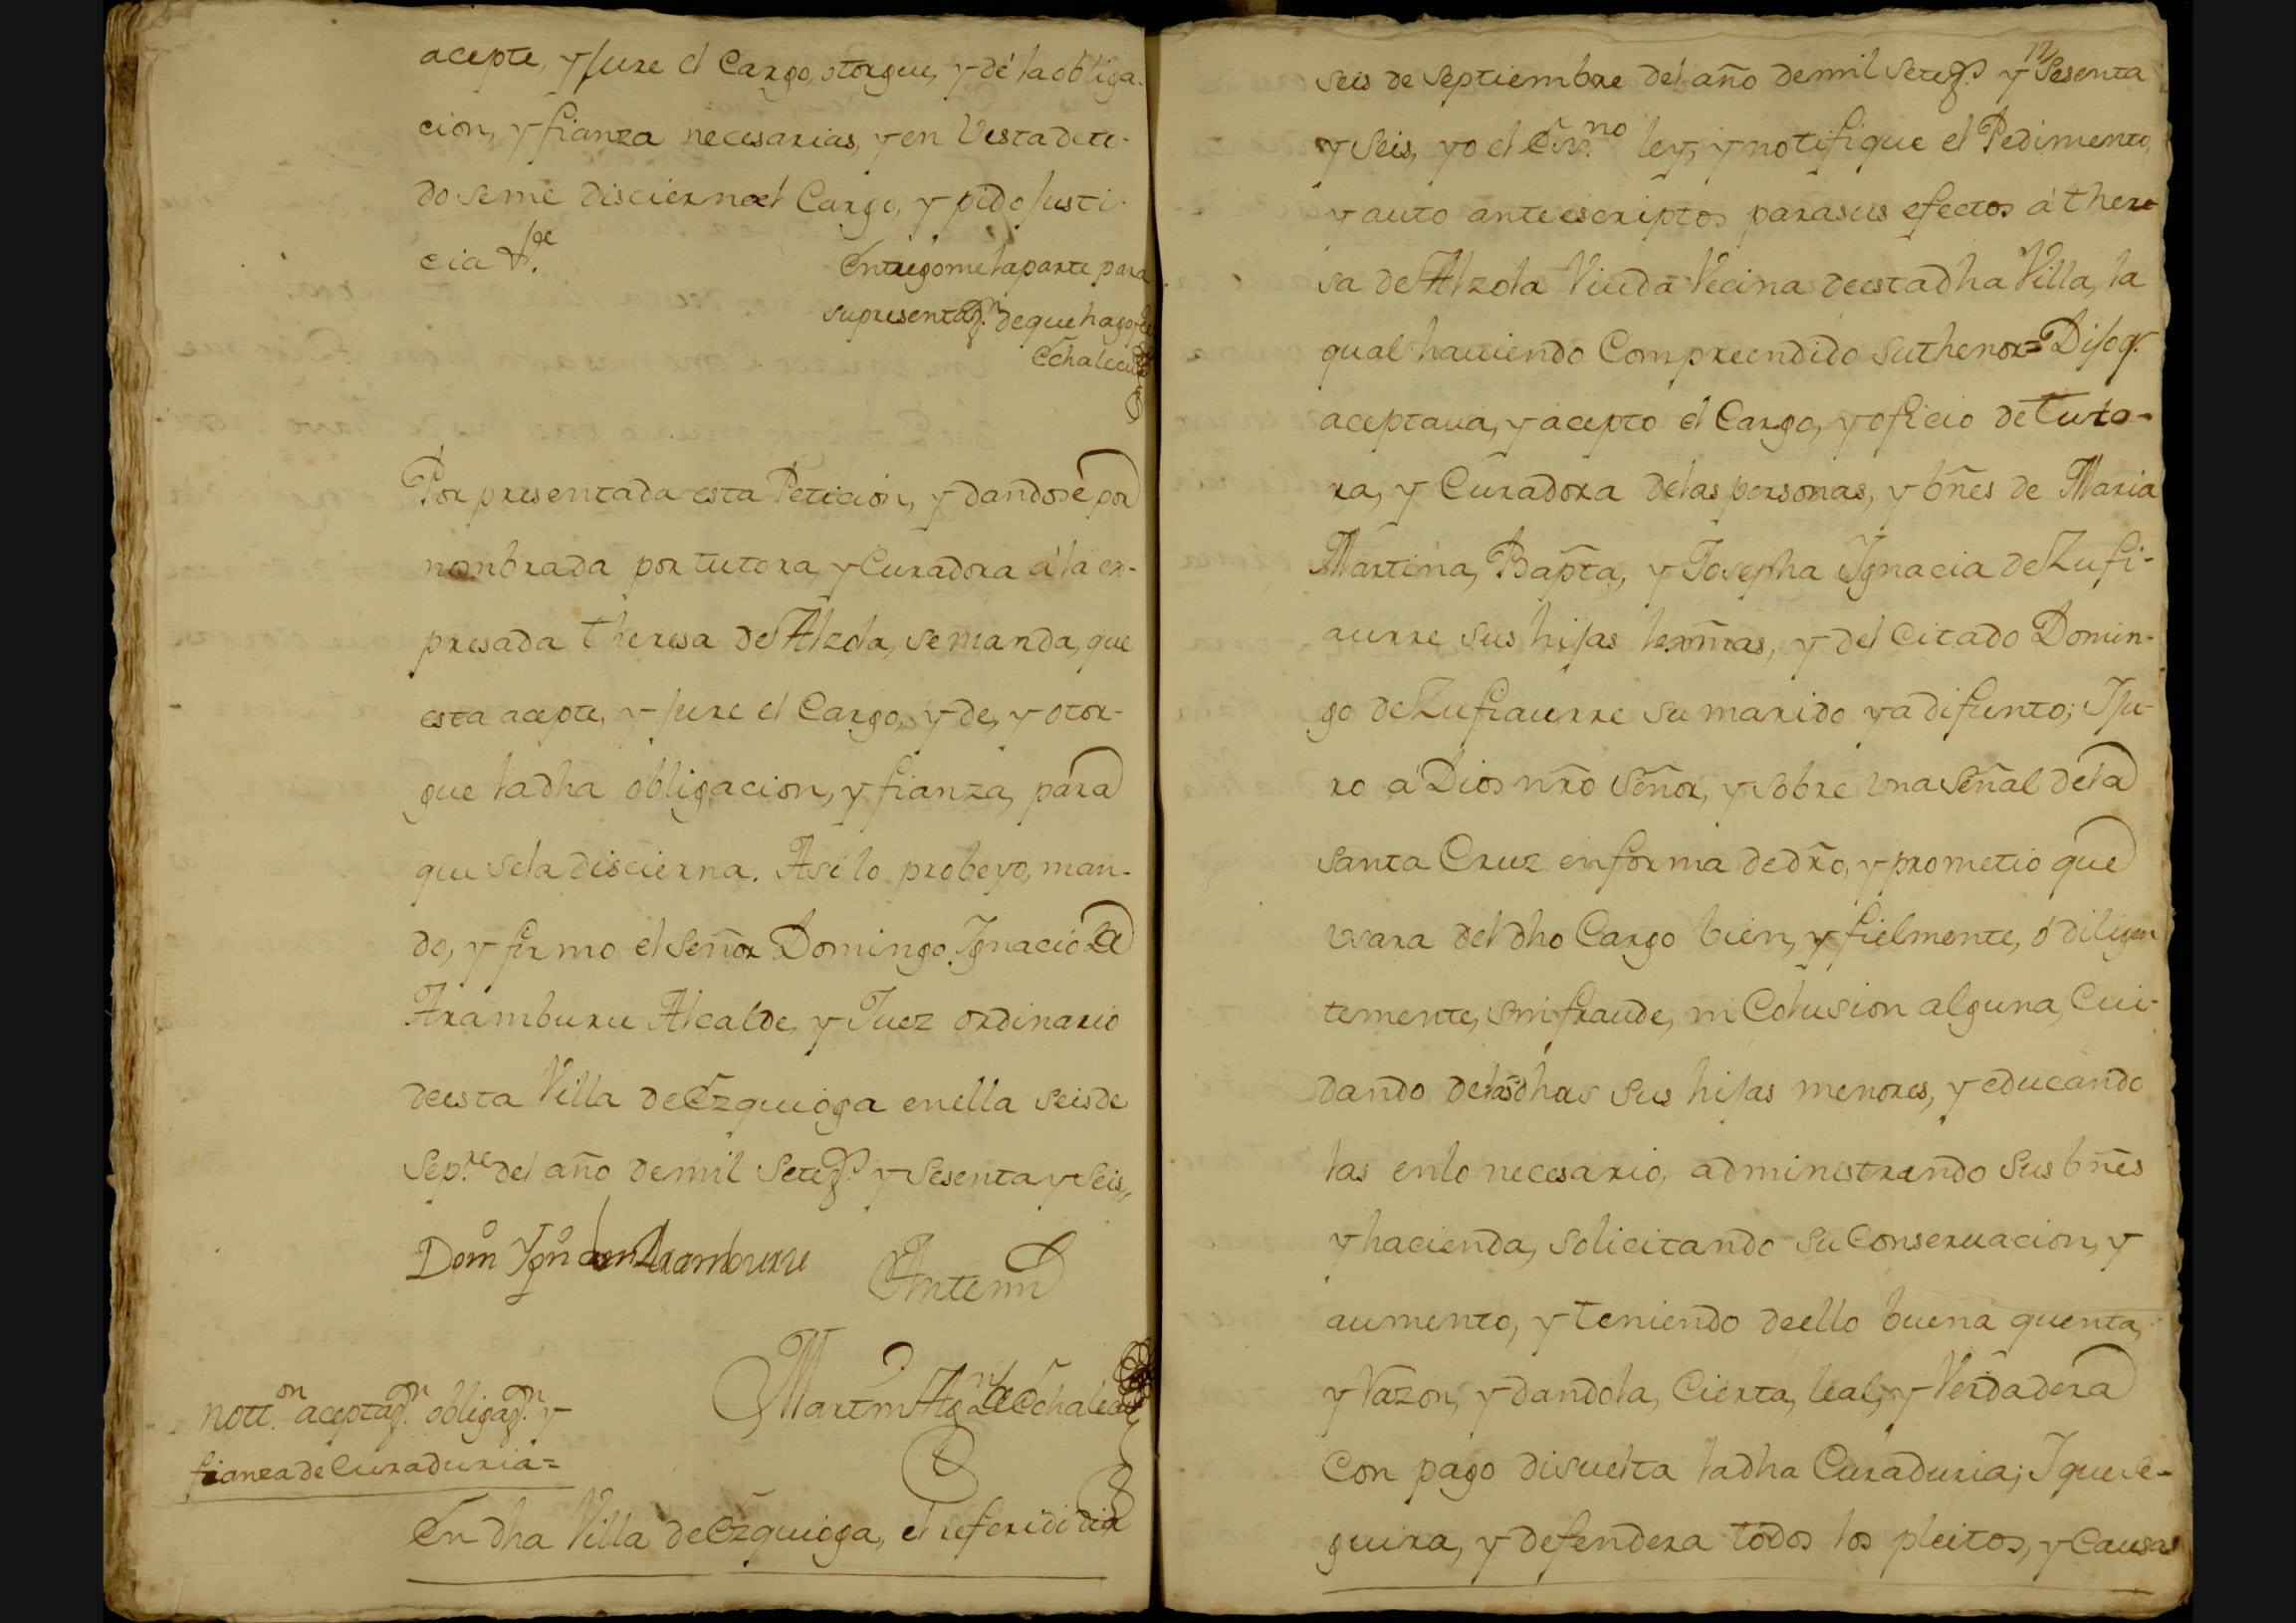 acepte, y jure el Cargo, otorgue, y dé la obliga-
cion, y fianza necesarias, y en Vista de to-
do se me discierna el Cargo, y pido Justi-
cia &.
Entregome la parte para
su presentaz.n de que hago fee
Echalecu
Por presentada esta Peticion, y dandose por
nombrada por tutora, y Curadora á la ex-
presada theresa de Alzola, se manda, que
esta acepte, y jure el Cargo, y de, y otor-
gue la dha obligacion, y fianza, para
que se la discierna. Asi lo probeyo, man-
do, y firmo el Señor Domingo Ignacio de
Aramburu Alcalde, y Juez ordinario
de esta Villa de Ezquioga en ella seis de
Sep.re del año de mil Setez.s y Sesenta y Seis,,
Domo Ygno de Aramburu
Ante mi
Martin Ag.n de Echalecu
Nott.on aceptaz.n obligaz.n y
fianza de Curaduria=
En dha Villa de Ezquioga, el referido dia
17
seis de Septiembre del año de mil Setez.s y Sesenta
y Seis, yo el Esn.no ley, y notifique el Pedimento,
y auto ante escriptos para sus efectos á there
sa de Alzola Viuda Vecina de esta dha Villa, la
qual haviendo Compreendido su thenor= Dijo q.
aceptava, y acepto el Cargo, y oficio de Tuto-
ra, y Curadora de las personas, y bñes de Maria
Martina, Bapta, y Josepha Ignacia de Zufi-
aurre sus hijas lexmas, y del Citado Domin-
go de Zufiaurre su marido ya difunto; I Ju-
ro á Dios nro Señor, y sobre una Señal de la
Santa Cruz en forma de dro, y prometio que
usara del dho Cargo bien, y fielmente, ó diligen
temente, sin fraude, ni Colusion alguna, Cui-
dando de las dhas Sus hijas menores, y educando
las en lo necesario, administrando Sus bñes
y hacienda, solicitando su Conservacion, y
aumento, y teniendo de ello buena quenta,
y razon, y dandola, Cierta, leal, y Verdadera
Con pago disuelta la dha Curaduria; I que se-
guira, y defendera todos los pleitos, y Causas